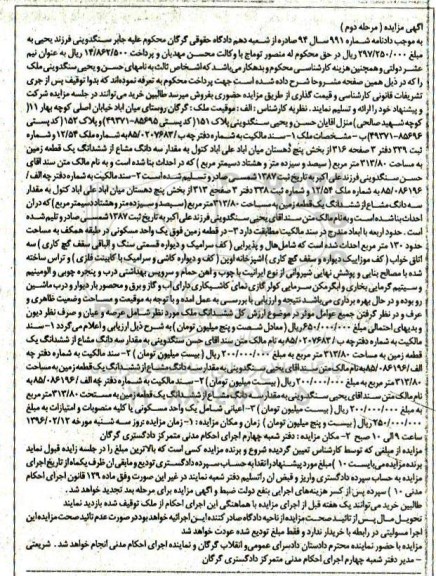 آگهی مزایده ( مرحله دوم )
به موجب دادنامه شماره ۹۹۱ سال ۹۴ صادره از شعبه دهم دادگاه حقوقی گرگان محکوم علیه جابر سنگدوینی فرزند یحیی به
مبلغ ۲۹۷/۲۵۰/۰۰۰ ریال در حق محکوم له منصور توماج با وکالت محسن مهدیان و پرداخت ۱۴/۸۶۲/۵۰۰ ریال به عنوان نیم
عشر دولتی و همچنین هزینه کارشناسی محکوم و بدهکار می باشد که اشخاص ثالث به نامهای حسن و یحیی سنگدوینی ملک
را که در ذیل همین صفحه مشروحا شرح داده شده است جهت پرداخت محکوم به تعرفه نموده اند که بدوا توقیف پس از جری
تشریفات قانونی کارشناسی و قیمت گذاری از طریق مزایده حضوری بفروش میرسد طالبین خرید می توانند در جلسه مزایده شرکت
و پیشنهاد خود را ارائه و تسلیم نمایند . نظریه کارشناس : الف - موقعیت ملک : گرگان روستای میان اباد خیابان اصلی کوچه بهار ۱۱(
کوچه شهید صالحی ) منزل اقایان حسن و یحیی سنگدوینی پلاک ۱۵۱ ( کد پستی ۸۵۶۹۵-۴۹۳۷۱) و پلاک ۱۵۲ ( کد پستی
۸۵۶۹۶-۴۹۳۷۱) ب - مشخصات ملک ۱-سند مالکیت به شماره دفترچه ب/۸۵/۰۲۰۷۶۸۳ به شماره ملک ۱۲/۵۴ و شماره
ثبت ۳۳۹ دفتر ۳ صفحه ۳۱۶ از بخش پنج دهستان میان اباد علی اباد کتول به مقدار سه دانگ مشاع از ششدانگ یک قطعه زمین
به مساحت ۳۱۳/۸۰ متر مربع ( سیصد و سیزده متر و هشتاد دسیمتر مربع ) که در احداث بنا شده است و به نام مالک متن سند اقای
حسن سنگدوینی فرزند علی اکبر به تاریخ ثبت ۱۳۸۷ شمسی صادر و تسلیم شده است ۲-سند مالکیت به شماره دفترچه الف/
۸۵/۰۸۶۱۹۶ به شماره ملک ۱۲/۵۴ و شماره ثبت ۳۳۸ دفتر ۳ صفحه ۳۱۳ از بخش پنج دهستان میان اباد علی اباد کتول به مقدار
سه دانگ مشاع از ششدانگ یک قطعه زمین به مساحت ۳۱۳/۸۰ متر مربع ( سیصد و سیزده متر و هشتاد دسیمتر مربع ) که در ان
احداث بنا شده است و به نام مالک متن سند اقای یحیی سنگدوینی فرزند علی اکبر به تاریخ ثبت ۱۳۸۷ شمسی صادر و تلیم شده
است . حدود اربعه با ابعاد مندرج در سند مالکیت مطابقت دارد ۳- در قطعه زمین فوق یک واحد مسکونی در طبقه همکف به مساحت
حدود ۱۳۰ متر مربع احداث شده است که شامل هال و پذیرایی ( کف سرامیک و دیواره قسمتی سنگ و الباقی سقف گچ کاری ) سه
اتاق خواب ( کف موزاییک دیواره و سقف گچ کاری ) اشپزخانه اوپن ( کف و دیواره کاشی و سرامیک با کابینت فلزی ) و تراس ساخته
شده با مصالح بنایی و پوشش نهایی شیروانی از نوع ایرانیت با چوب و اهن حمام و سرویس بهداشتی درب و پنجره چوبی و الومینیم
و سیتیم گرمایی بخاری و ابگرمکن سرمایی کولر گازی نمای کاشیکاری دارای اب و گاز و برق و محصور بار دیوار و درب ماشین
رو بوده و در حال بهره برداری می باشد نتیجه و ارزیابی با بررسی به عمل امده و با توجه به موقعیت و مساحت وضعیت ظاهری و
عرف و در نظر گرفتن جمیع عوامل موثر در موضوع ارزش کل ششدانگ ملک مورد نظر شامل عرصه و عیان و صرف نظر دیون
و بدیهای احتمالی مبلغ ۶۵۰/۰۰۰/۰۰۰ ریال ( معادل شصت و پنج میلیون تومان ) به شرح ذیل ارزیابی و اعلام می گردد ۱- سند
مالکیت به شماره دفترچه ب /۸۵/۰۲۰۷۶۸۳ به نام مالک متن اقای حسن سنگدوینی به مقدار سه دانگ مشاع از ششدانگ یک
قطعه زمین به مساحت ۳۱۳/۸۰ متر مربع به مبلغ ۲۰۰/۰۰۰/۰۰۰ ریال ( بیست میلیون تومان ) ۲- سند مالکیت به شماره دفتر چه
الف/۸۵/۰۸۶۱۹۶ به نام مالک متن سند اقای یحیی سنگدوینی به مقدار سه دانگ مشاع از ششدانگ یک قطعه زمین به مساحت
۳۱۳/۸۰ متر مربع به مبلغ ۲۰۰/۰۰۰/۰۰۰ ریال ( بیست میلیون تومان ) ۲- سند مالکیت به شماره دفتر چه الف /۸۵/۰۸۶۱۹۶ به
نام مالک متن سند اقای یحیی سنگدوینی به مقدار سه دانگ مشاع از ششدانگ یک قطعه زمین به مساحت ۳۱۳/۸۰ متر مربع
به مبلغ ۲۰۰/۰۰۰/۰۰۰ ریال ( بیست میلیون تومان ) ۳- اعیانی شامل یک واحد مسکونی با کلیه منصوبات و امتیازات به مبلغ
۲۵۰/۰۰۰/۰۰۰ ریال ( بیست و پنج میلیون تومان ) زمان و مکان مزایده : ۱- زمان مزایده روز سه شنبه مورخه ۱۳۹۶/۰۲/۱۲
ساعت ۹ الی ۱۰ صبح ۲- مکان مزایده : دفتر شعبه چهارم اجرای احکام مدنی متمرکز دادگستری گرگان
مزایده از مبلغی که توسط کارشناس تعیین گردیده شروع و برنده مزایده کسی است که بالاترین مبلغ را در جلسه زاید قبول نماید
برنده مزایده می بایست ۱۰) مبلغ مورد پیشنهاد را نقدا به حساب سپرده دادگستری تودیع و مابقی ان ظرف یکماه از تاریخ اجرای
مزایده به حساب سپرده دادگستری واریز و فیض ان را تسلیم دفتر شعبه نمایند در غیر این صورت وفق ماده ۱۲۹ قانون اجرای احکام
مدنی ۱۰ ) سپرده پس از کسر هزینه های اجرایی بنفع دولت ضبط و اگهی مزایده برای مرحله بعد تجدید خواهد شد .
طالبین خرید می توانند یک هفته قبل از اجرای مزایده با هماهنگی این اجرای احکام از ملک توقیف شده بازدید نمایند
تحویل مال پس از تائید صحت مزایده از ناحیه دادگاه صادر کننده این اجرائیه خواهد بود در صورت عدم تائید صحت مزایده این
اجرا مسولیتی در رابطه با خریدار ندارد و فقط مبلغ تودیع شده عودت خواهد شد
مزایده با حضور نماینده محترم دادستان دادسرای عمومی و انقلاب گرگان و نماینده اجرای احکام مدنی انجام خواهد شد . شریعتی
- مدیر دفتر شعبه چهارم اجرای احکام مدنی متمرکز دادگستری گرگان